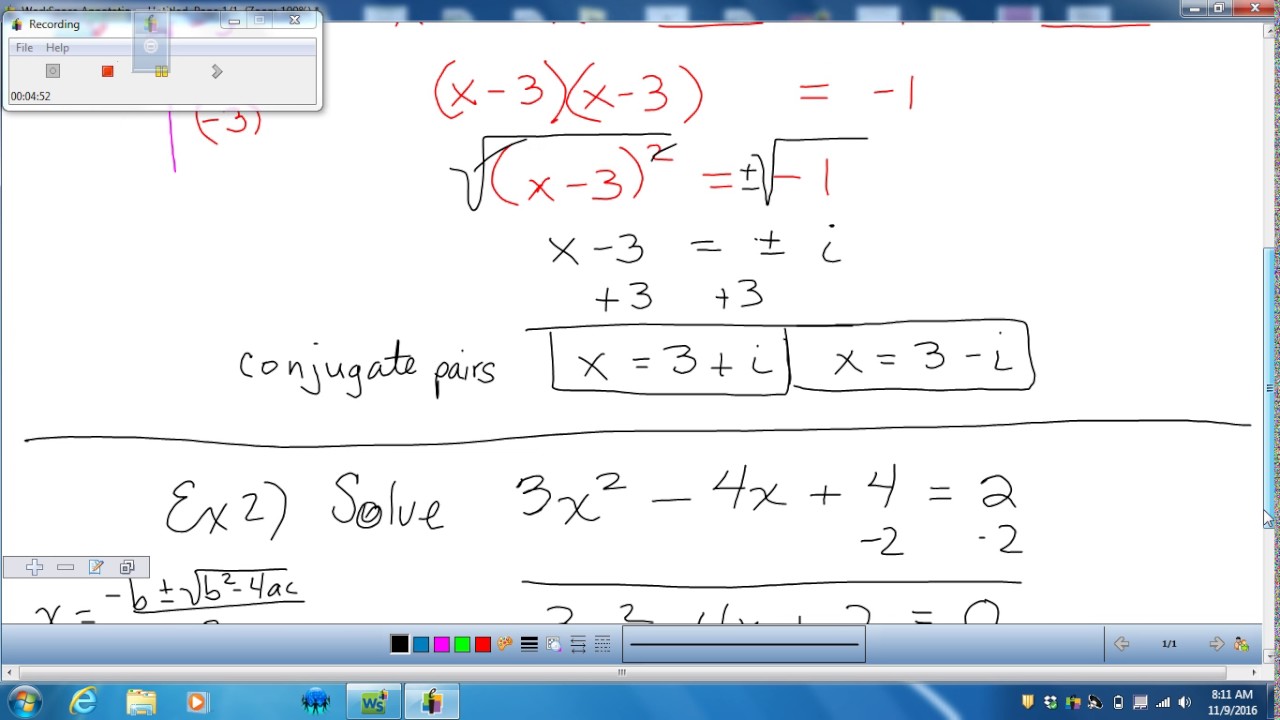 Recording
File Help
00:04:52
(-3)
(x-3)(x-3) = -1
√(x-3)² = ±√-1
x-3 = ± i
+3 +3
conjugate pairs x = 3 + i x = 3 - i
Ex2) Solve 3x² - 4x + 4 = 2
-2 -2
-b ± √b²-4ac
x =
= 0
1/1
Ws
8:11 AM
11/9/2016